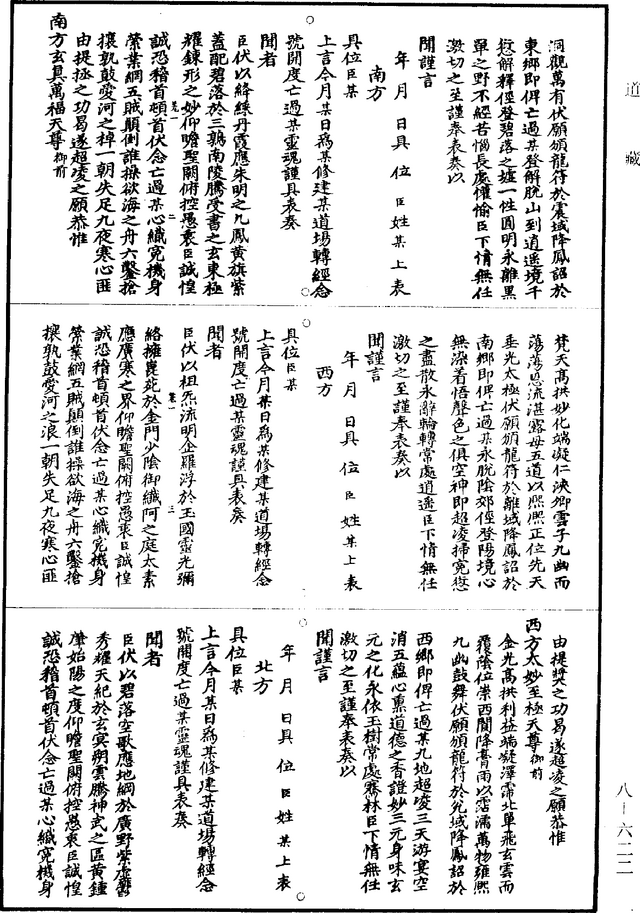 道藏
洞觀萬有伏願頒龍符於震域降鳳詔於
東鄉即俾亡過某登解脫山到逍遥境千
愆解釋徑登碧落之墟一性圓明永離黑
單之野不經苦惱長處懽愉臣下情無任
激切之至謹奉表奏以
聞謹言
年月日具位臣姓某上表
南方
具位臣某
上言今月某日為某修建某道場轉經念
號開度亡過某靈魂謹具表奏
聞者
臣伏以絳綵丹霞應朱明之九鳳黃旗紫
蓋配碧落於三鶉南陵騰受書之玄東極
耀鍊形之妙仰瞻聖闕俯控愚衷臣誠惶
誠恐稽首頓首伏念亡過某心纖寃機身
縈業網五賊顛倒誰操欲海之舟六鑿搶
攘孰鼓愛河之棹一朝失足九夜寒心匪
由提拯之功曷遂超凌之願恭惟
南方玄真萬福天尊御前
梵天高拱妙化端凝仁洽鄉雲子九幽而
蕩蕩恩流湛露母五道以熙熙正位先天
垂光太極伏願頒龍符於離域降鳳詔於
南鄉即俾亡過某永脫陰郊徑登陽境心
無染着悟聲色之俱空神即超凌掃寃愆
之盡散永辭輪轉常處逍遥臣下情無任
激切之至謹奉表奏以
聞謹言
年月日具位臣姓某上表
西方
具位臣某
上言今月某日為某修建某道場轉經念
號開度亡過某靈魂謹具表奏
聞者
臣伏以柤炁流明企羅浮於玉國靈光彌
絡擁崑苑於金門少陰御纖阿之庭太素
應廣寒之界仰瞻聖闕俯控愚衷臣誠惶
誠恐稽首頓首伏念亡過某心纖寃機身
縈業網五賊顛倒誰操欲海之舟六鑿搶
攘孰鼓愛河之浪一朝失足九夜寒心匪
由提獎之功曷遂超凌之願恭惟
西方太妙至極天尊御前
金光高拱利益端凝澤霈北單飛玄雲而
覆蔭位崇西閬降膏雨以霑濡萬物雍熙
九幽鼓舞伏願頒龍符於兊域降鳳詔於
西鄉即俾亡過某九地超凌三天游宴空
消五蘊心熏道德之香證妙三元身味玄
元之化永依玉樹常處騫林臣下情無任
激切之至謹奉表奏以
聞謹言
年月日具位臣姓某上表
北方
具位臣某
上言今月某日為某修建某道場轉經念
號開度亡過某靈魂謹具表奏
聞者
臣伏以碧落空歌應地綱於廣野紫虛鬱
秀耀天紀於玄冥朔雲騰神武之區黃鍾
肇始陽之度仰瞻聖闕俯控愚衷臣誠惶
誠恐稽首頓首伏念亡過某心纖寃機身
八—六二二